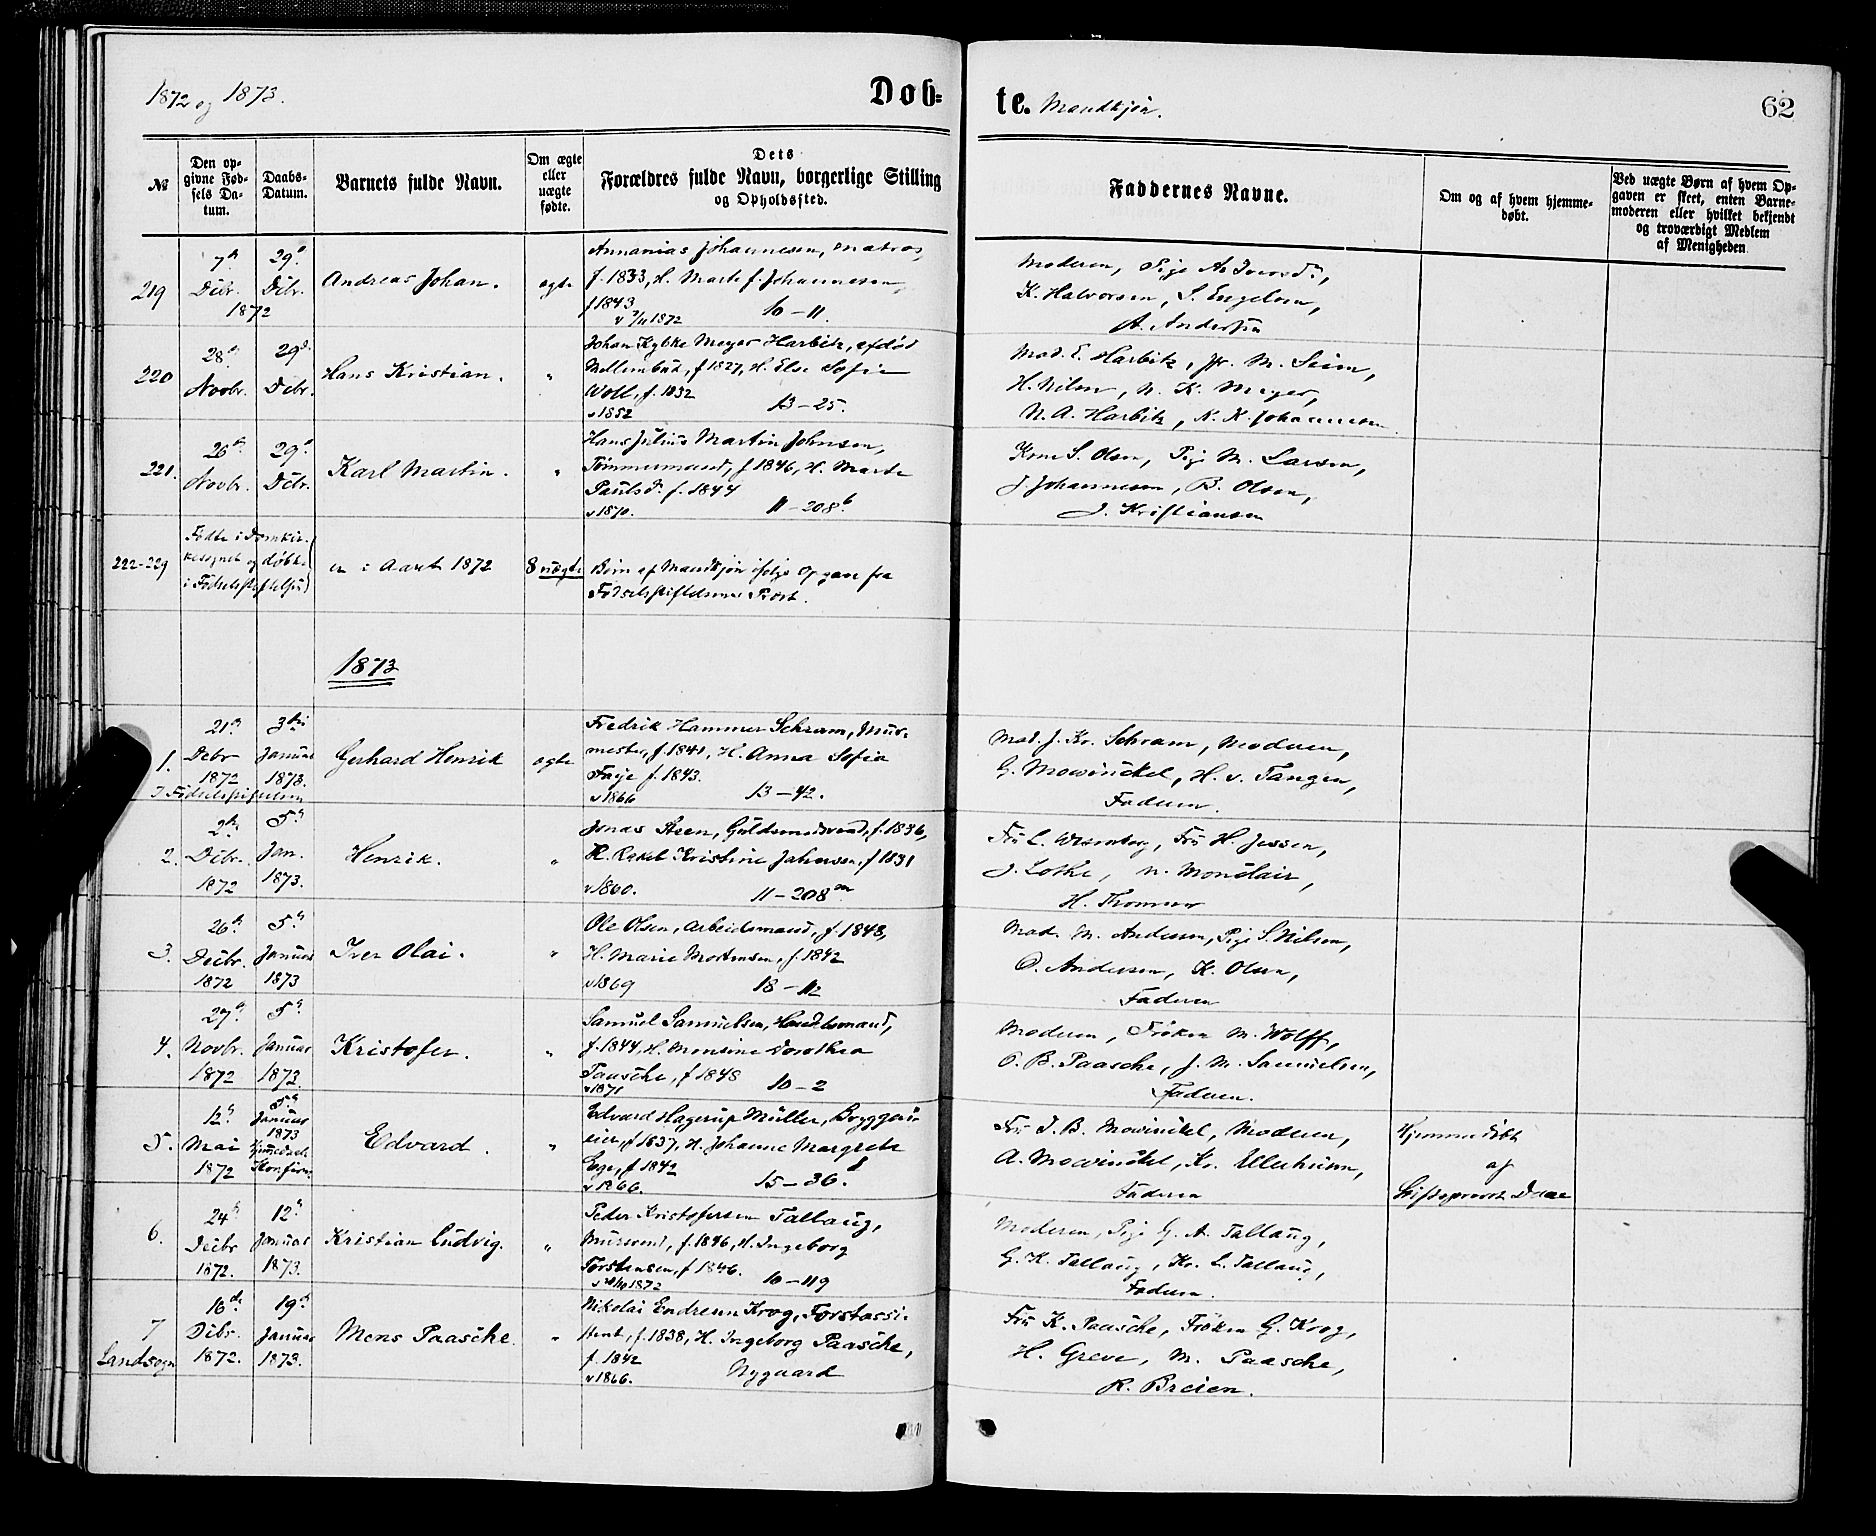 1872 og 1873.
Døb=
te. Mandkjøn.
62
№
Den op-
givne Fød-
sels Da-
tum.
Daabs-
Datum.
Barnets fulde Navn.
Om ægte
eller
uægte
fødte.
Dets
Forældres fulde Navn, borgerlige Stilling
og Opholdssted.
Faddernes Navne.
Om og af hvem hjemme-
døbt.
Ved uægte Børn af hvem Op-
gaven er skeet, enten Barne-
moderen eller hvilket bekjendt
og troværdigt Medlem
af Menigheden
219
7de
Decbr.
1872
29de
Decbr.
Andreas Johan.
ægte
Annanias Johannesen, Matros,
f. 1833, H. Marte f. Johannesen,
f 1843
v 1872
10-11.
Moderen, Pige
K. Halvorsen, S. Engelsen,
A. Andersen
220
28de
Novbr.
29de
Decbr.
Hans Kristian.
"
Johan Meyer Harbitz,
f 1827, H. Else Sofie
Woll, f. 1832
v 1852
13-25.
Mad. E. Harbitz, Jfr. M. Seim,
H. Nilsen, N. K. Meyer,
N. A. Harbitz, N. K. Johannesen
221.
26de
Novbr.
29de
Decbr.
Karl Martin.
"
Hans Julius Martin Johnsen,
Tømmermand, f 1846, H. Marte
Paulsd. f. 1844
v 1870.
11-208b
Kone S. Olsen, Pige M. Larsen,
J. Johannesen, B. Olsen,
J. Kristiansen
222-229
Fødte i Domkir-
kesognet og døbte
i Fødselsstiftelsen
er i Aaret 1872
8 uægte
Børn af Mandkjøn ifølge Opgave fra
Fødselsstiftelsens Præst.
1873
1.
21de
Decbr
1872
I Fødselsstiftelsen
3die
Januar
1873.
Gerhard Henrik
ægte
Fredrik Hammer Schram, Mur-
mester, f. 1841, H. Anna Sofia
Faye f. 1843.
v 1866
13-42.
Mad. J. Kr. Schram, Moderen,
G. Mowinckel, H. v. Tangen,
Faderen.
2.
2den
Decbr.
1872
5te
Jan.
1873.
Henrik.
"
Jonas Steen, Guldsmedsvend, f. 1836,
H. Rakel Kristine Johnsen, f 1831
v 1860.
11-208
Fru C. Wesenberg, Fru H. Jessen,
J. Lothe, N. Monclair,
H. Thomsen
3.
26de
Decbr.
1872
5te
Januar
1873
Iver Olai.
"
Ole Olsen, Arbeidsmand, f. 1848,
H. Marie Mortensen, f. 1842
v 1869
18-112
Mad. M. Andersen, Pige S. Nilsen,
O. Andersen, K. Olsen,
Faderen
4.
27de
Novbr.
1872
5te
Januar
1873.
Kristofer.
"
Samuel Samuelsen, Handelsmand,
f. 1844, H. Monsine Dorothea
Paasche, f 1848
v 1871
10-2
Moderen, Frøken M. Wolff,
O. B. Paasche, J. M. Samuelsen,
Faderen.
5.
12te
Mai
1872
5te
Januar
1873
Hjemmedaab
Konfirm.
Edvard.
"
Edvard Hagerup Müller, Bryggeri-
eier, f 1837, H. Johanne Margrete
f 1842
v 1866.
15-36.
Fru J. B. Mowinckel, Moderen,
A. Mowinckel, Kr. Ellerhusen,
Faderen
Hjemmedøbt
af
Stiftsprovst Daae
6.
24de
Decbr
1872.
12te
Januar
1873.
Kristian Ludvig.
"
Peder Kristofersen Tallaug,
Mursvend, f. 1846, H. Ingeborg
Torstensen, f 1846.
v 1872
10-119
Moderen, Pige G. A. Tallaug,
G. K. Tallaug, Kr. L. Tallaug,
Faderen.
7
Landsogn
16de
Decbr.
1872.
19de
Januar
1873.
Mons Paasche.
"
Nikolai Endresen Krog, Forstassi-
stent, f. 1838, H. Ingeborg Paasche,
f. 1842
v 1866.
Nygaard
Fru K. Paasche, Frøken G. Krog,
H. Greve, M. Paasche,
R. Breien.